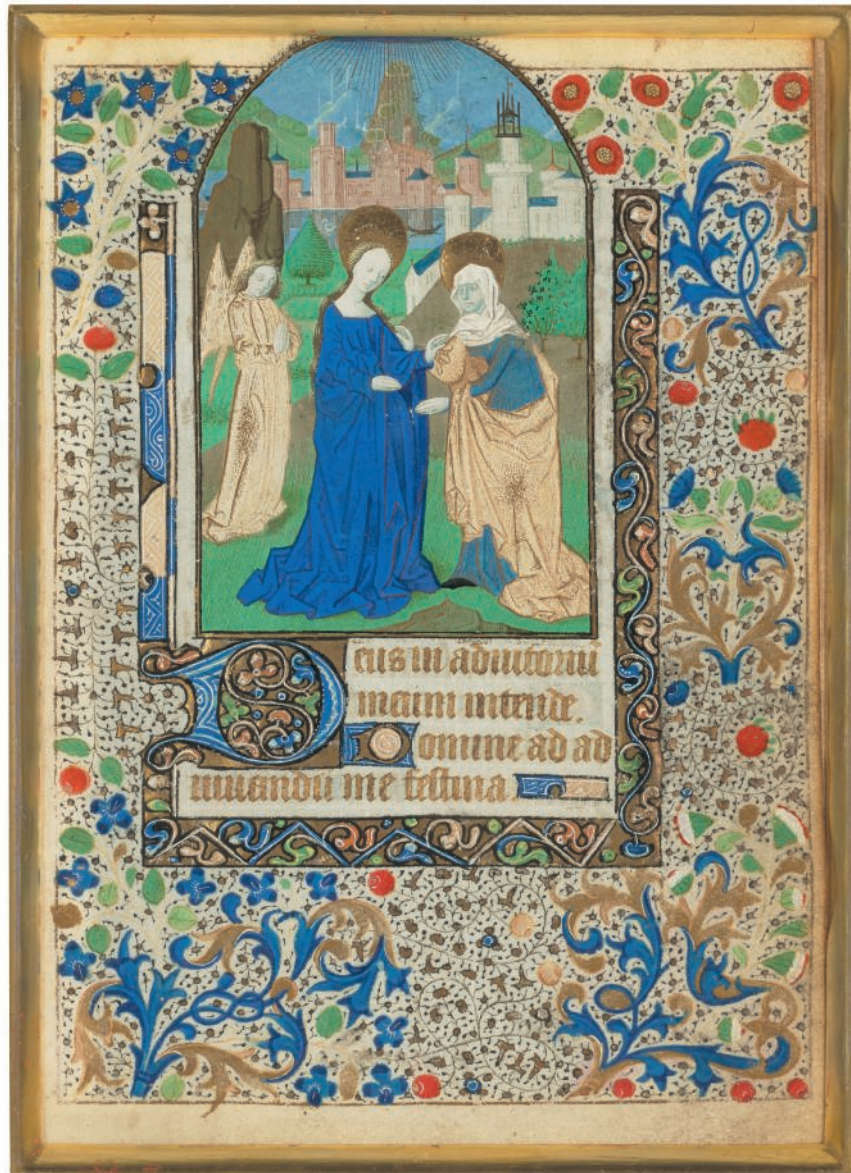 Deus in adiutoriū
meum intende.
Domine ad ad
iuuandū me festina.